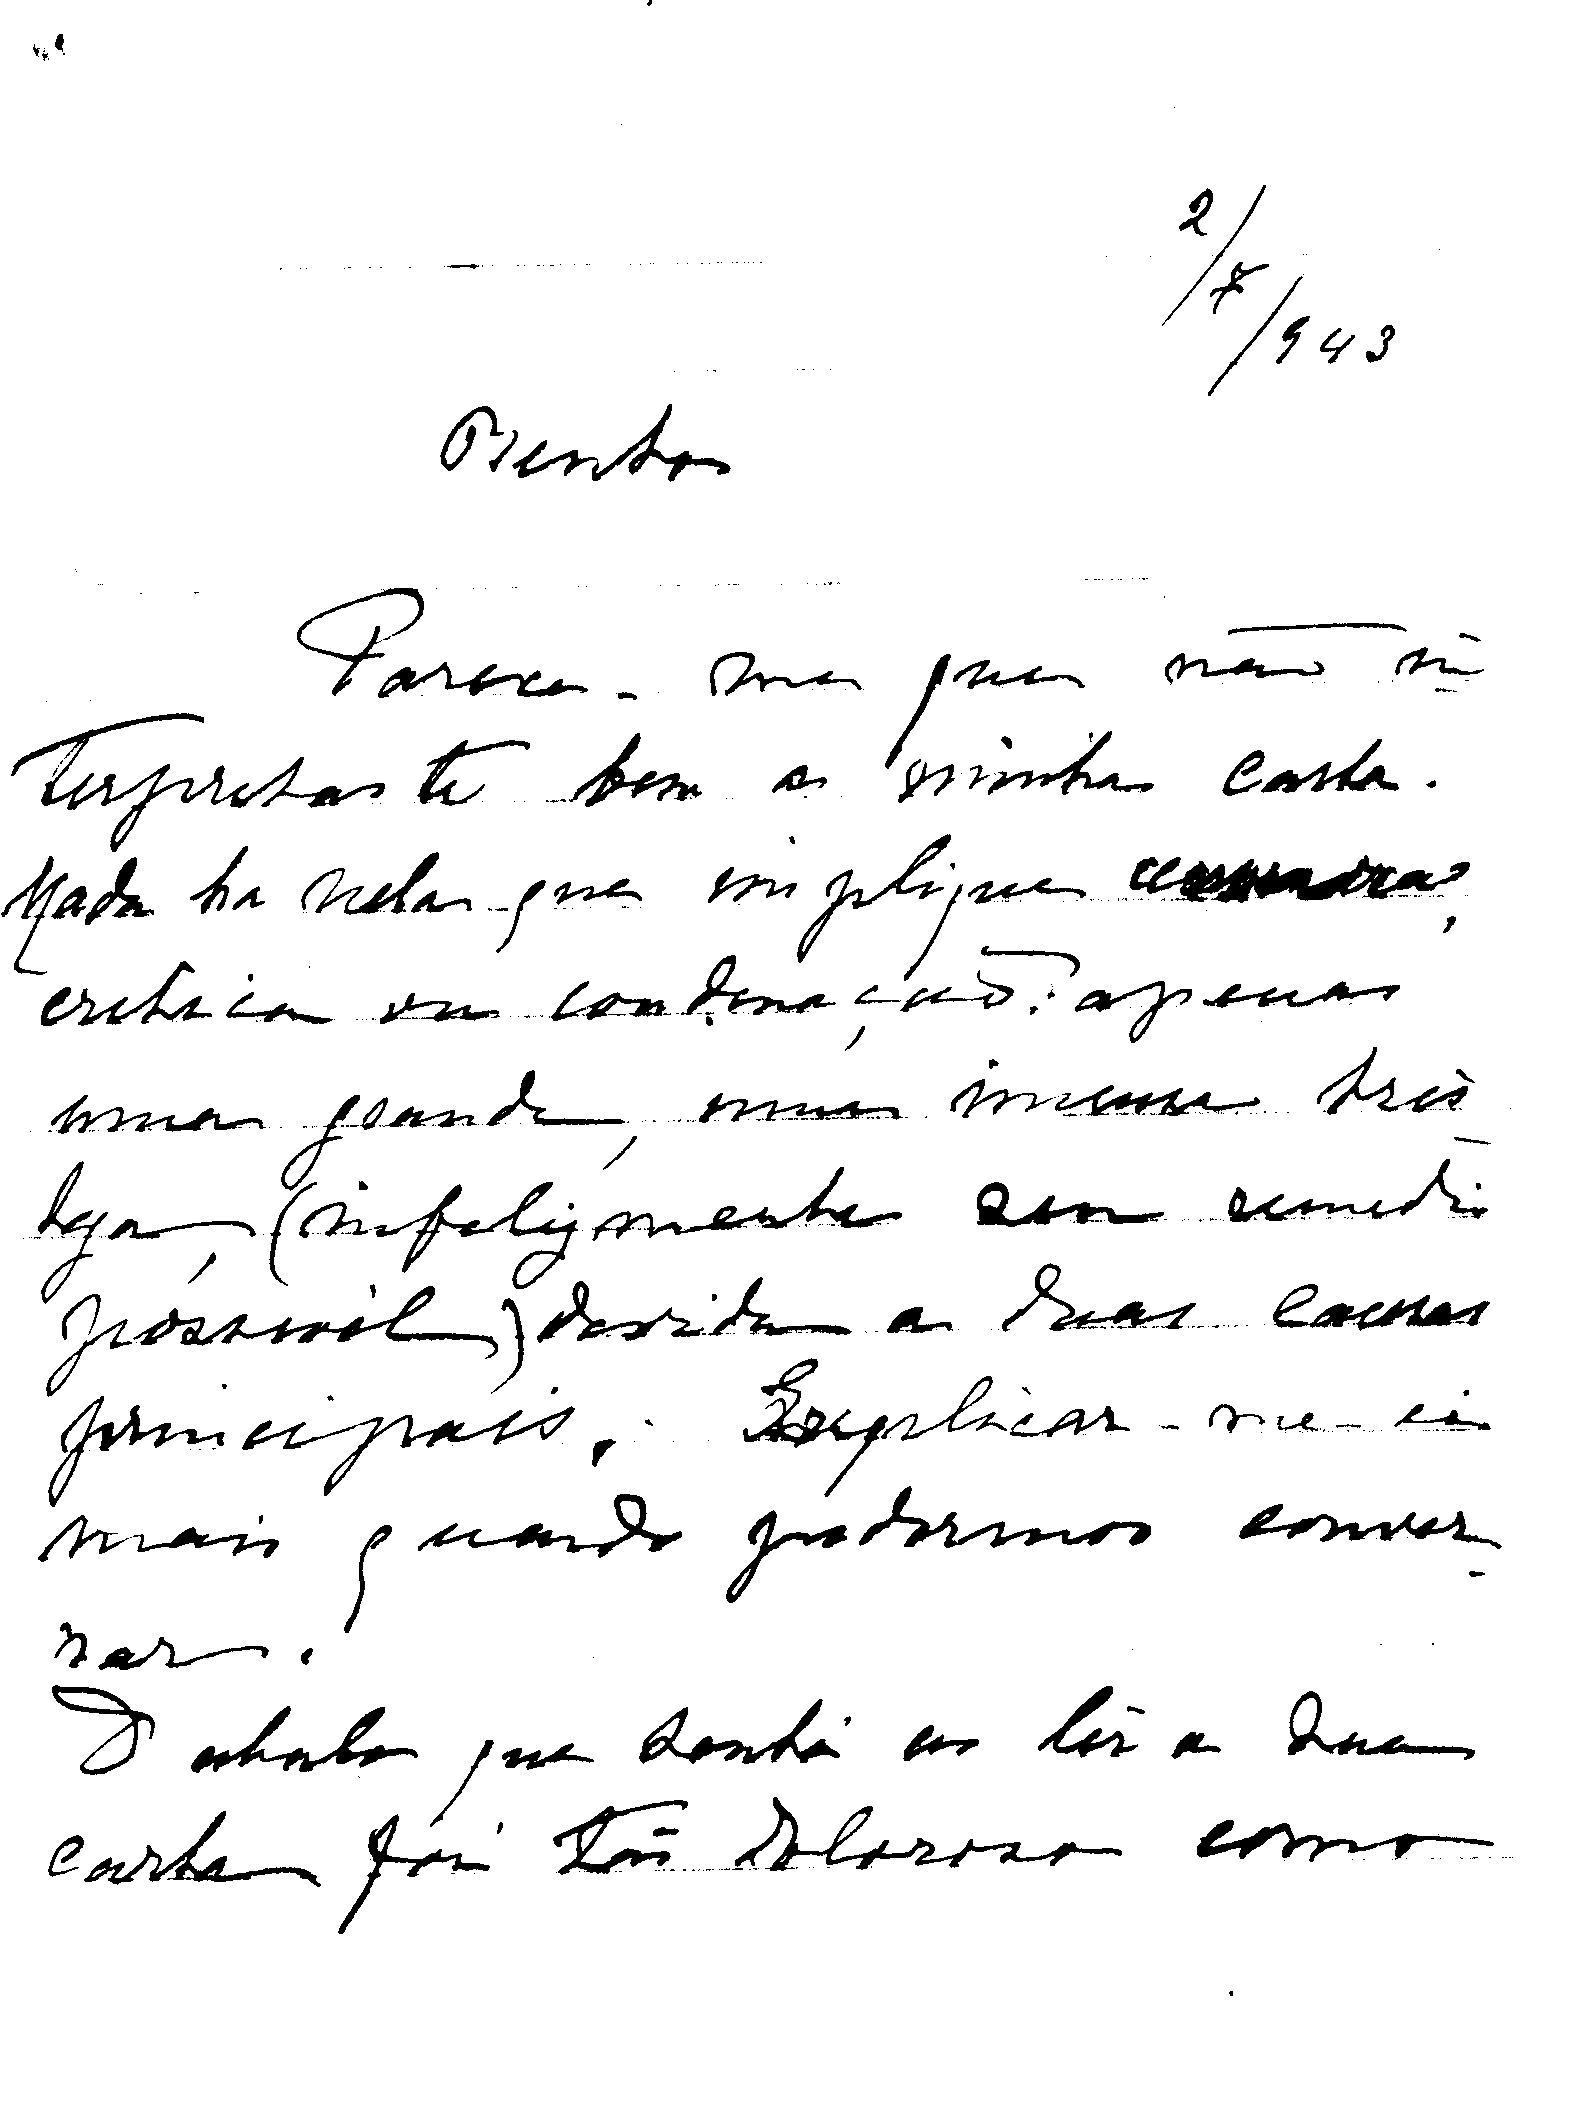 2/7/943
Bento
Parece-me que não in-
terpretaste bem a minha carta.
Nada ha nela que implique censura,
critica ou condenação: apenas
uma grande, uma imensa tris-
teza, (infelizmente sem remedio
possivel) devida a duas causas
principais. Explicar-me-ei
mais quando podermos conver-
sar.
O abalo que senti ao lêr a tua
carta foi tão doloroso como